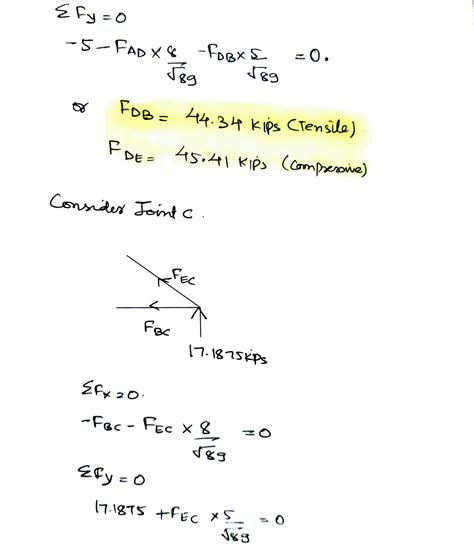 ΣFy = 0
-5 - FAD × 8/√89 - FDB × 5/√89 = 0.
or FDB = 44.34 kips (Tensile)
FDE = 45.41 kips (Compressive)
Consider Joint C.
FEC
FBC
17.1875 kips
ΣFx = 0.
-FBC - FEC × 8/√89 = 0
ΣFy = 0
17.1875 + FEC × 5/√89 = 0